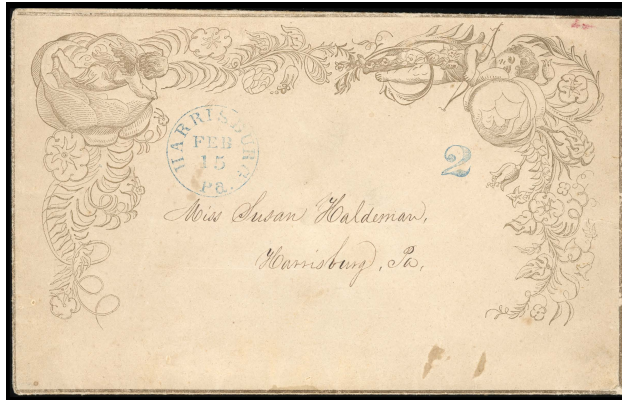 HARRISBURG
FEB
15
Pa.
2
Miss Susan Haldeman,
Harrisburg, Pa,